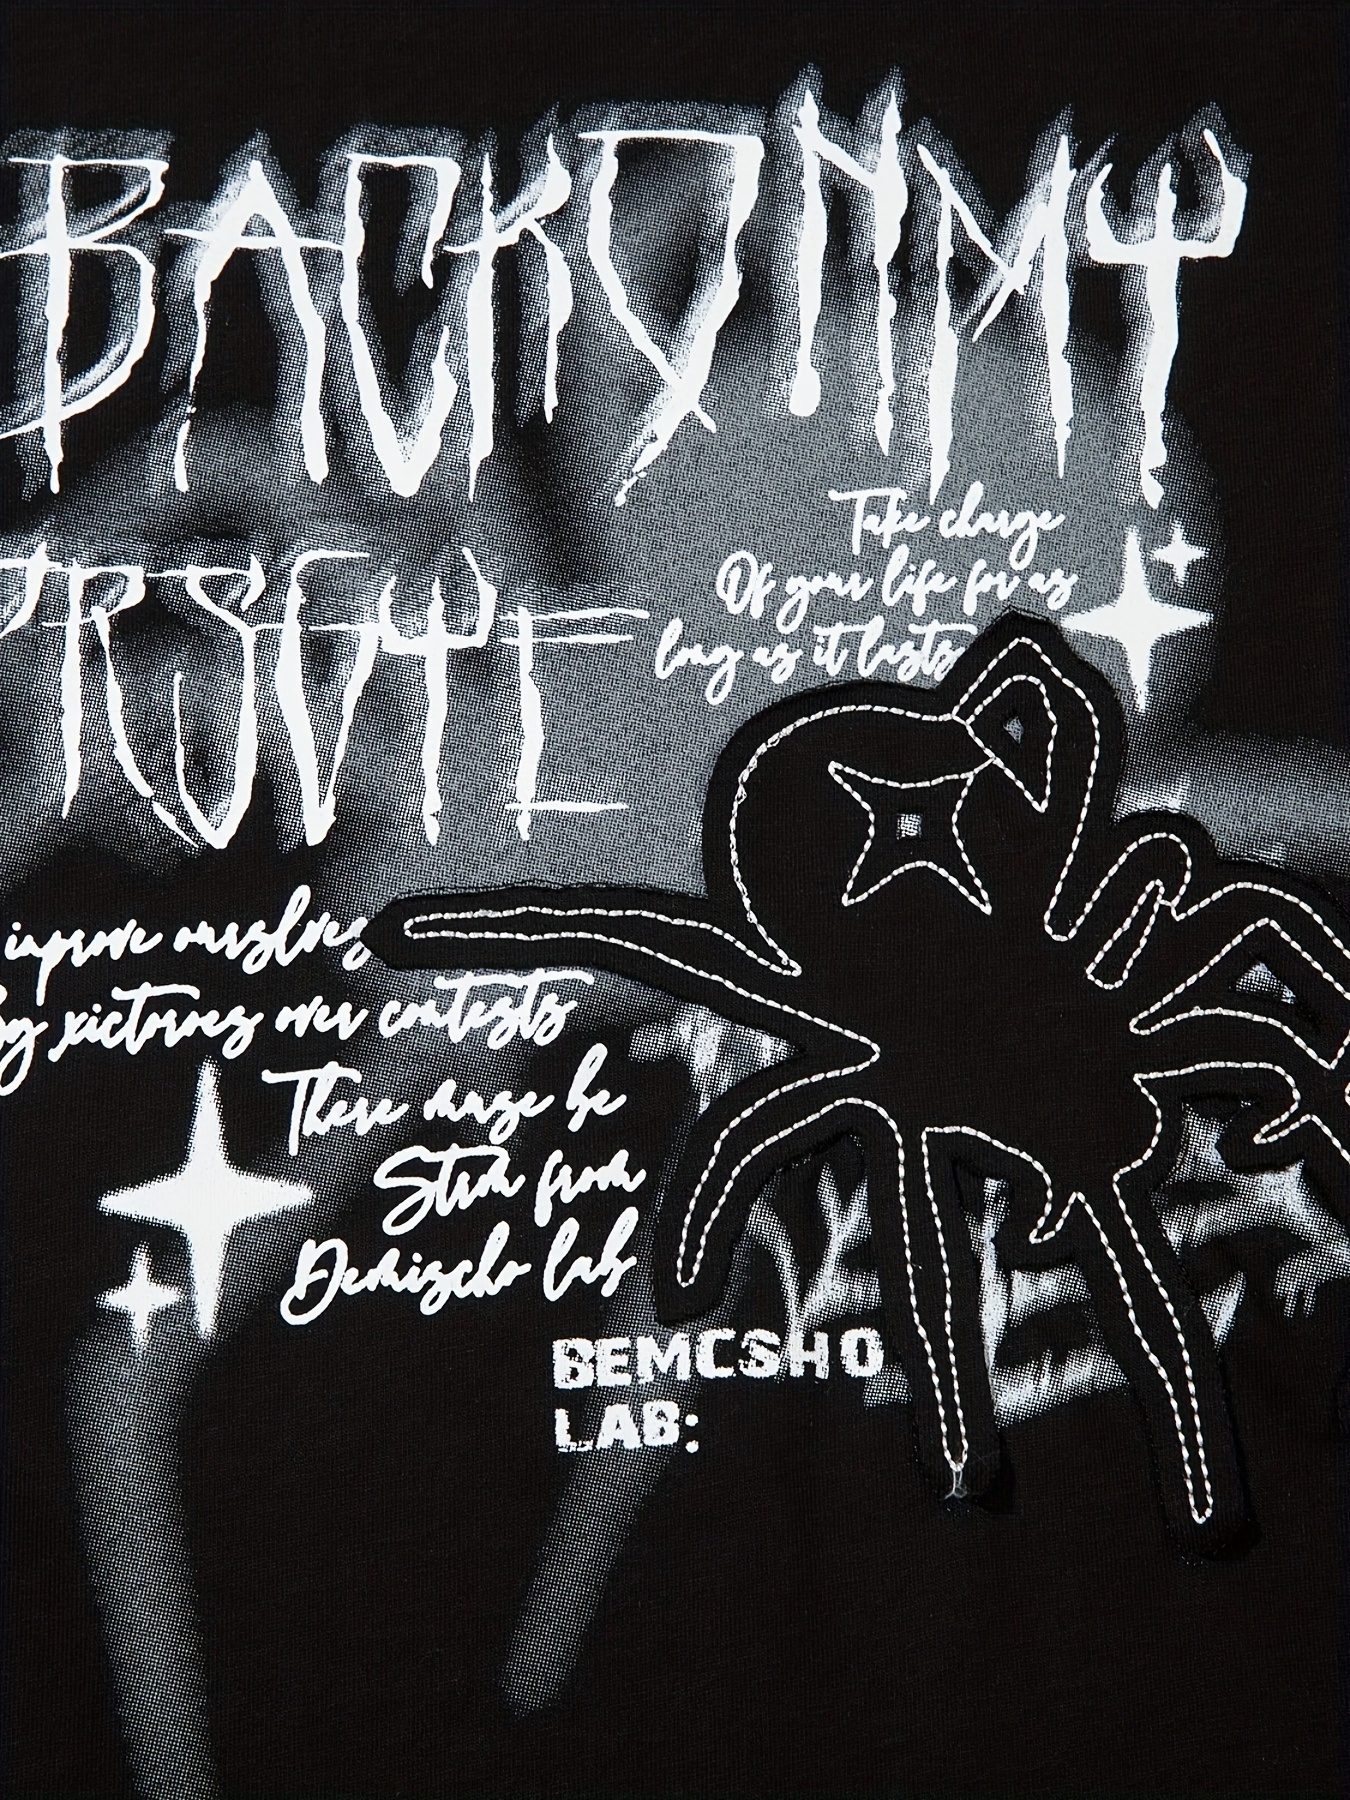 BACKONMY
PRSGTE
Take charge
Of your life for as
long as it lasts
improve ourslves
by victories over contests
There
be
from
Demischo lab
BEMCSHO
LAB: